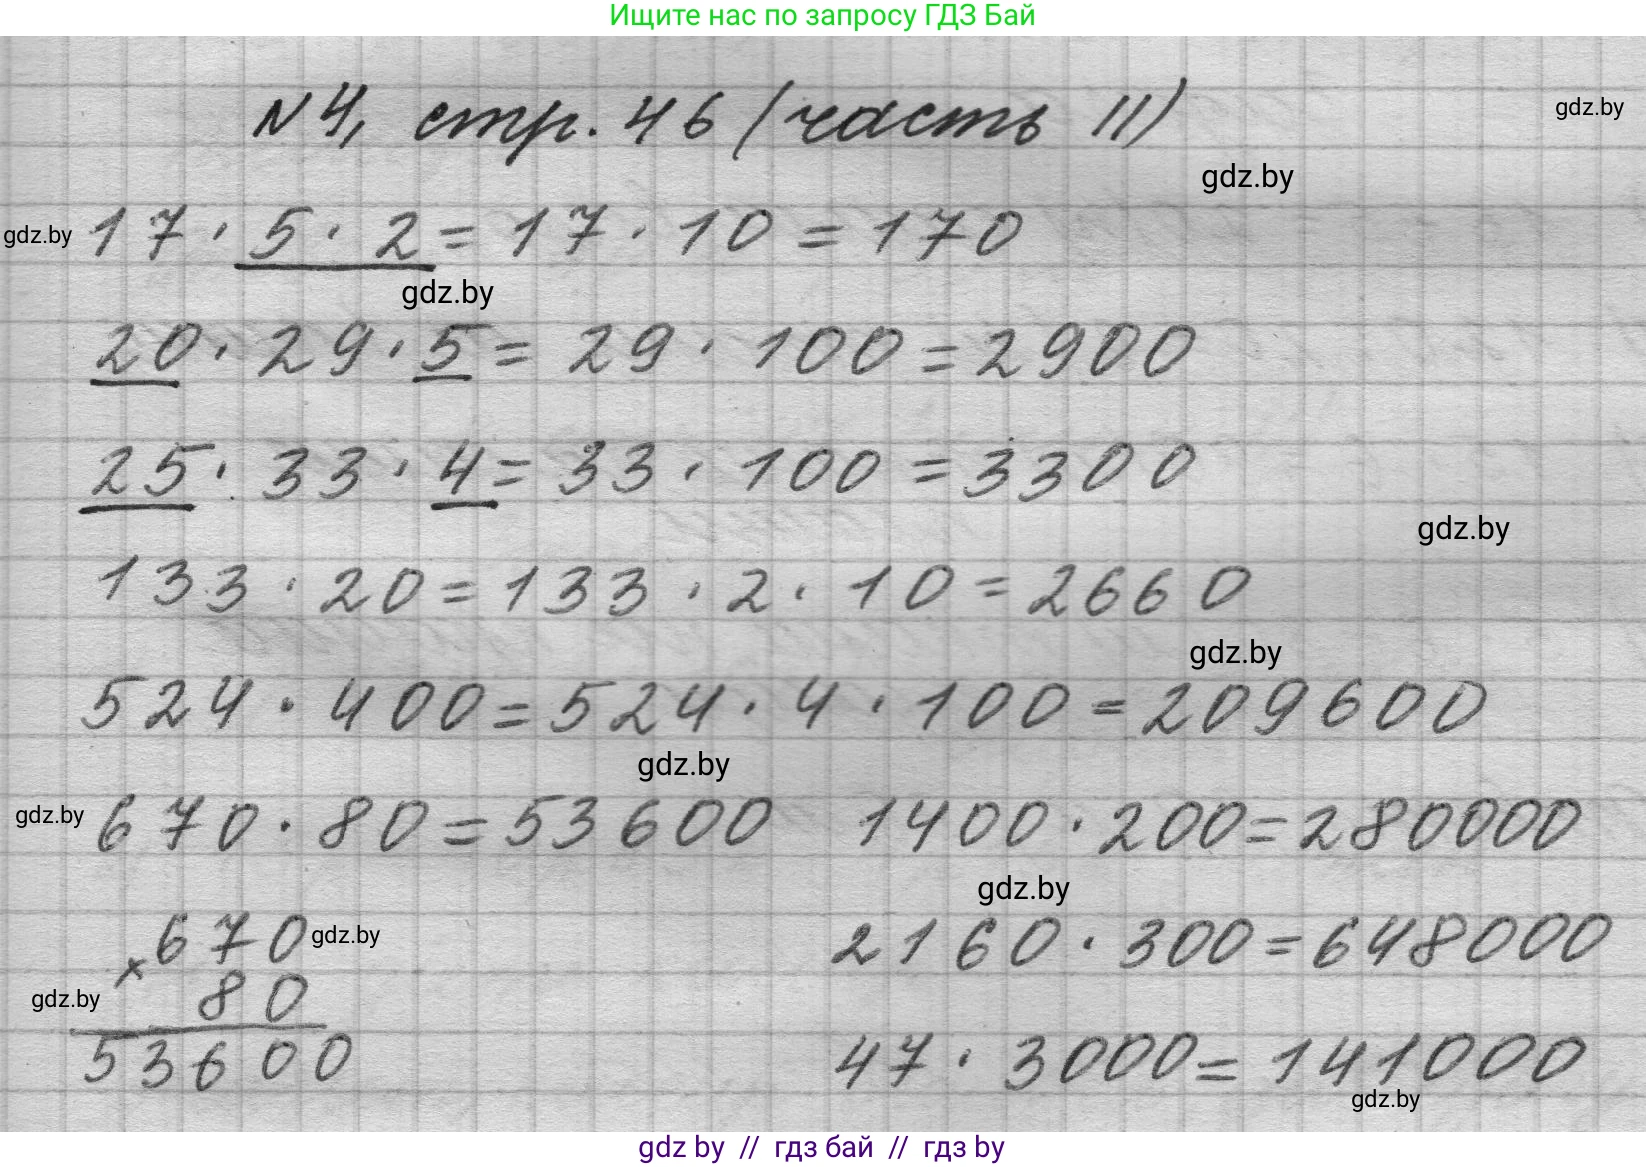 Ищите нас по запросу ГДЗ Бай
№4, стр. 46 (часть II)
gdz.by
gdz.by
gdz.by
17 · 5 · 2 = 17 · 10 = 170
gdz.by
20 · 29 · 5 = 29 · 100 = 2900
25 · 33 · 4 = 33 · 100 = 3300
gdz.by
133 · 20 = 133 · 2 · 10 = 2660
gdz.by
524 · 400 = 524 · 4 · 100 = 209600
gdz.by
gdz.by
670 · 80 = 53600 1400 · 200 = 280000
gdz.by
670
gdz.by
× 80
gdz.by
53600
2160 · 300 = 648000
47 · 3000 = 141000
gdz.by
gdz by // гдз бай // гдз by